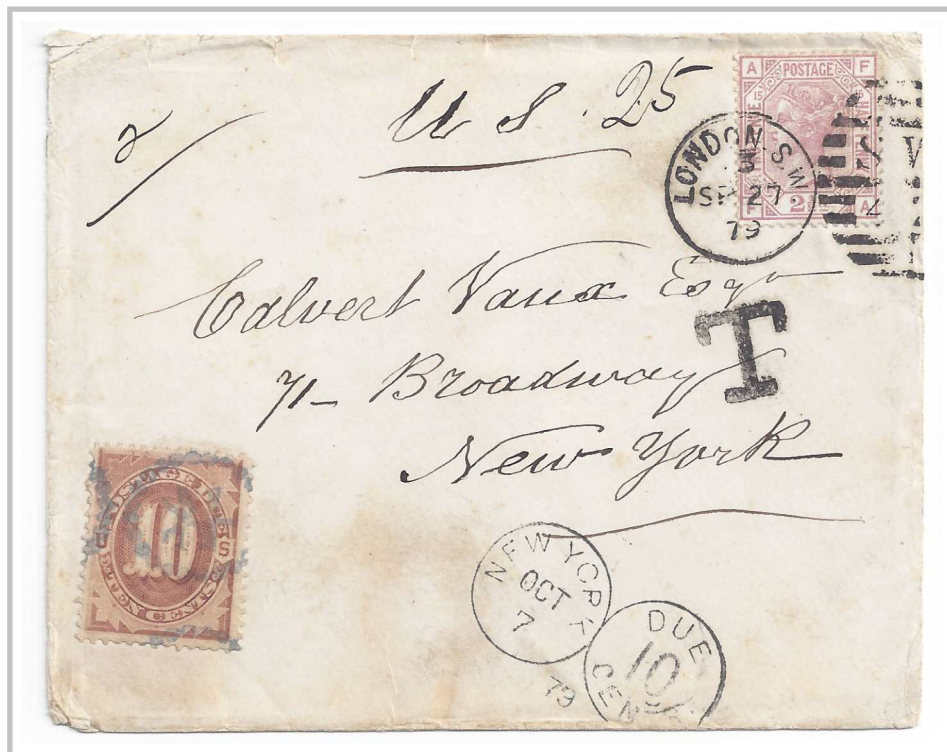 2/ U S. 25
A POSTAGE F
15
F 2½ A
LONDON. S.W
3
SP 27
79
S W
Calvert Vaux Esqr
T
71 Broadway
New York
POSTAGE DUE
10
TEN CENTS
NEW YORK
OCT
7
79
DUE
10
CENTS